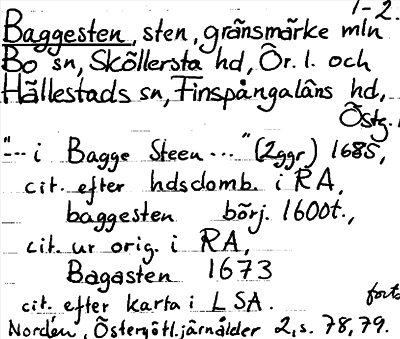 1-2.
Baggesten, sten, gränsmärke mln
Bo sn, Sköllersta hd, Ör. l. och
Hällestads sn, Finspångaläns hd,
Östg.
"--- i Bagge Steen ---" (2ggr) 1685,
cit. efter hdsdomb. i RA,
baggesten börj. 1600t.,
cit. ur orig. i RA,
Bagasten 1673
cit. efter karta i LSA.
forts
Nordén, Östergötl. järnålder 2, s. 78, 79.